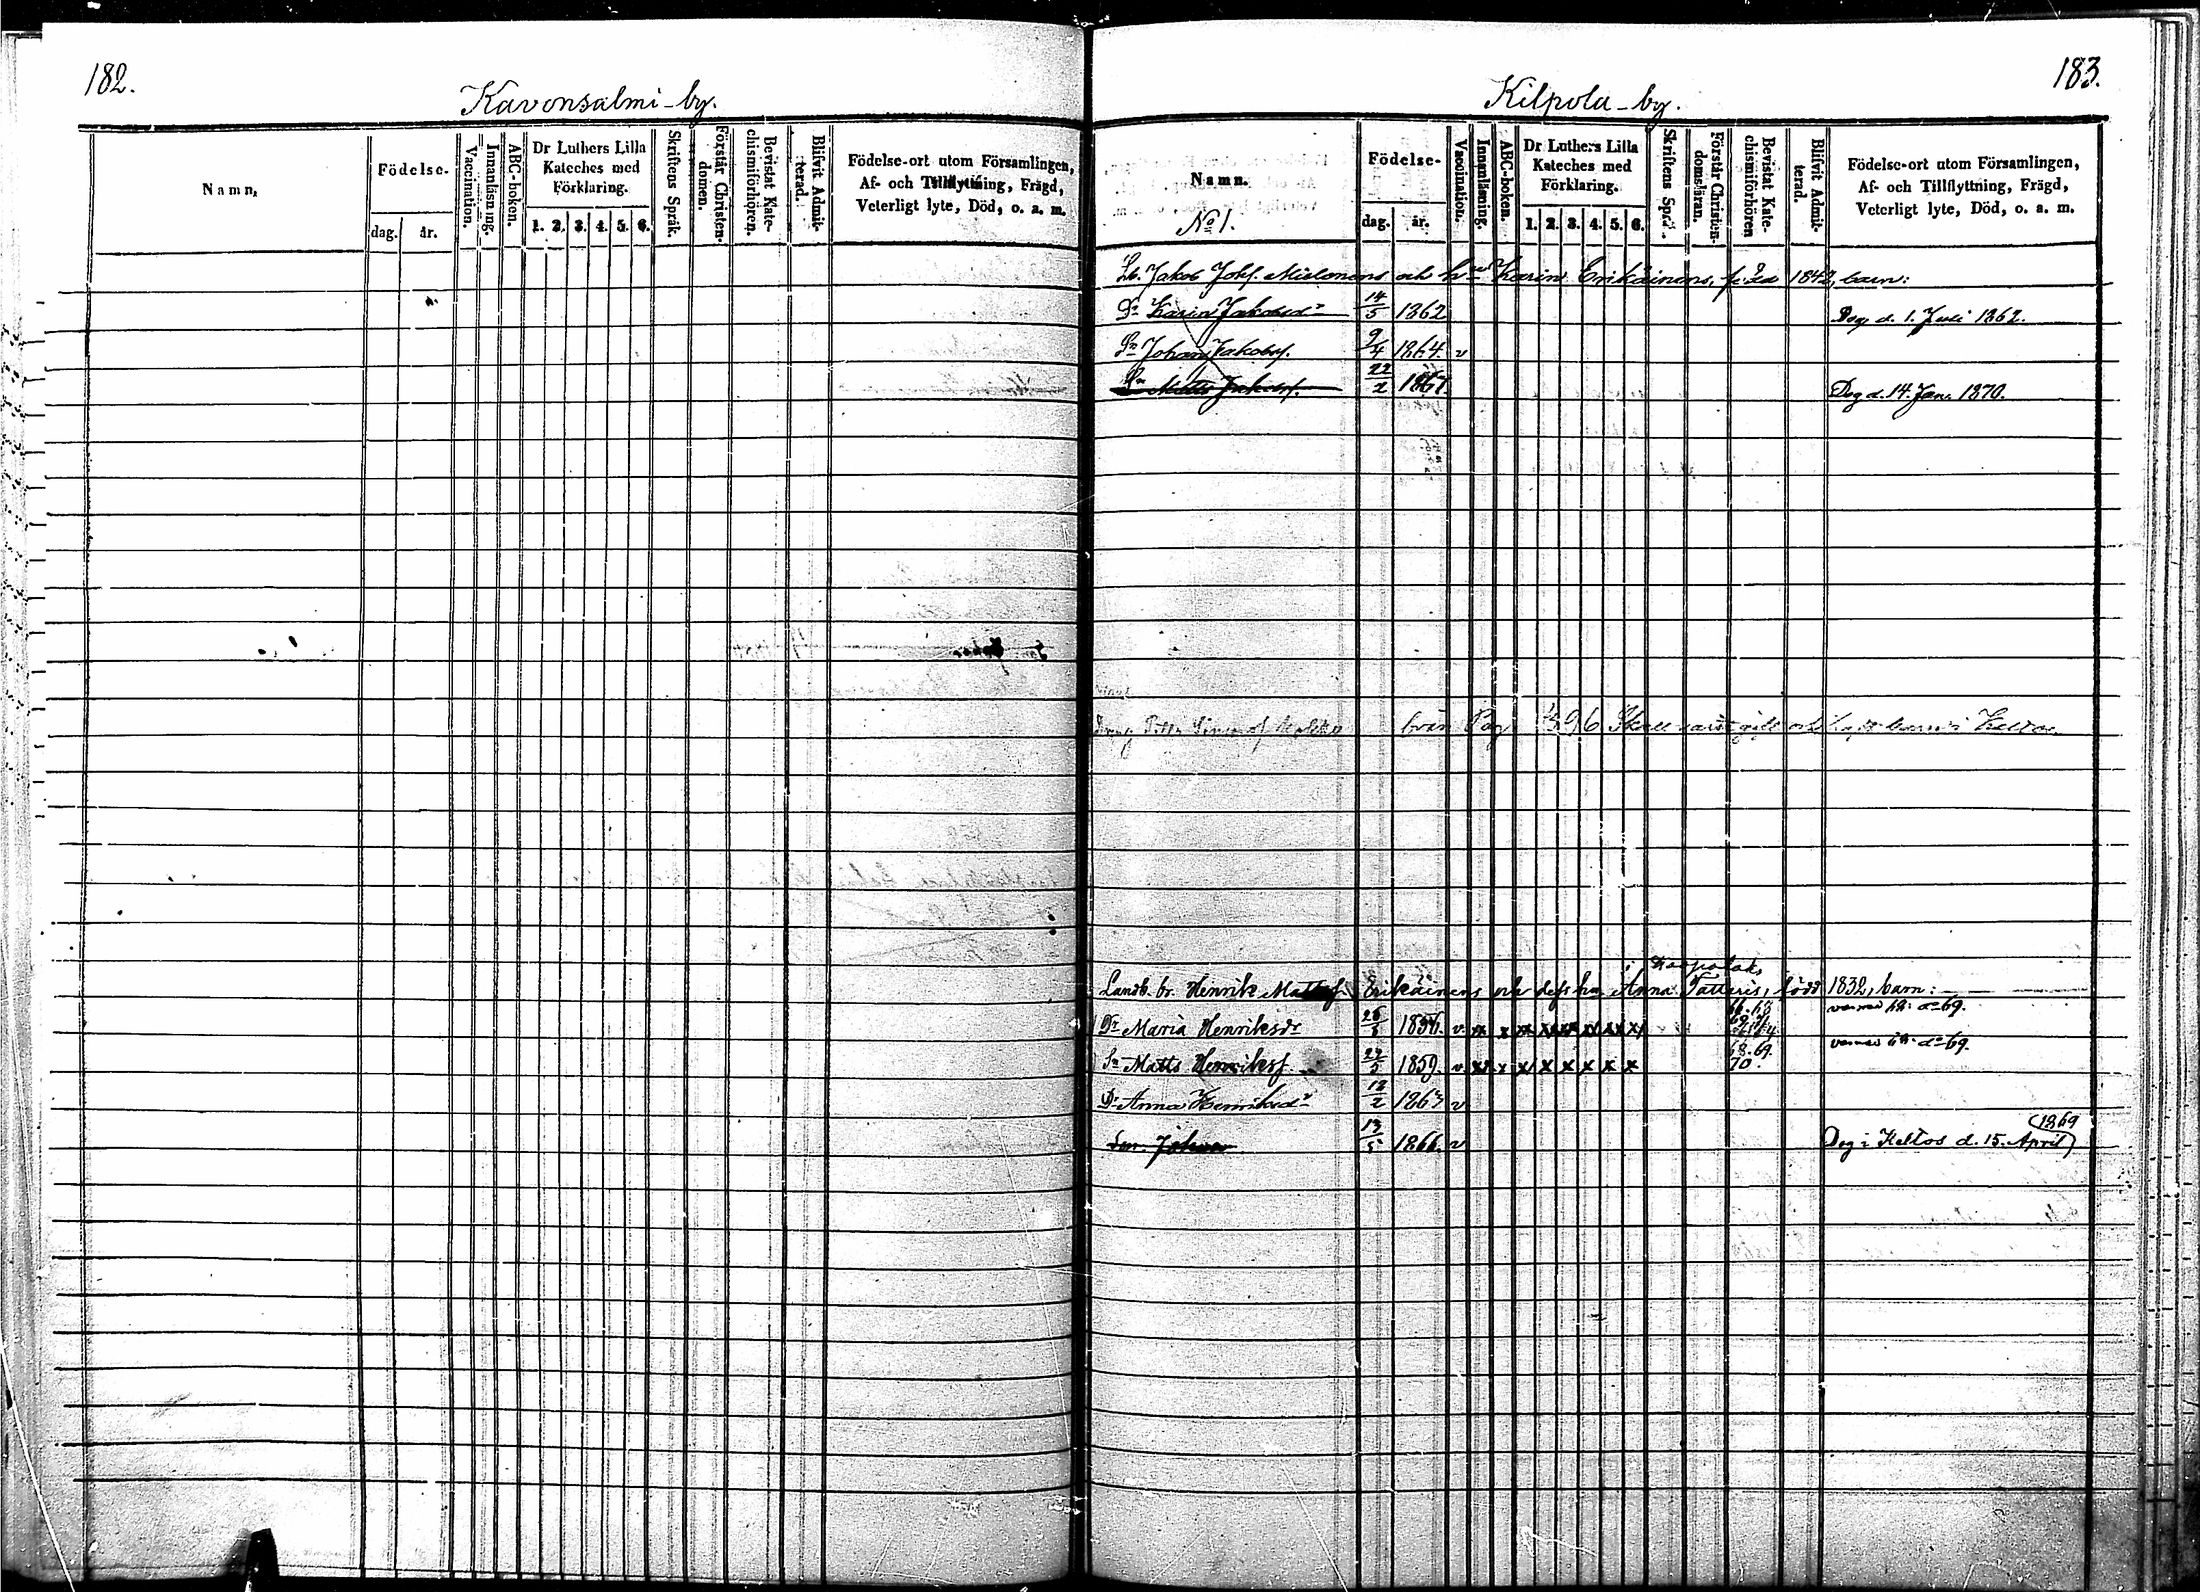 182.
Kavonsalmi-by.
Namn,
Födelse-
dag.
år.
Vaccination.
Innanläsning.
ABC-boken.
Dr Luthers Lilla
Kateches med
Förklaring.
1. 2. 3. 4. 5. 6.
Skriftens Språk.
Förstår Christen-
domen.
Bevistat Kate-
chismiförhören.
Blifvit Admit-
terad.
Födelse-ort utom Församlingen,
Af- och Tillflyttning, Frägd,
Veterligt lyte, Död, o. a. m.
183.
Kilpola-by.
Namn.
No 1.
Födelse-
dag.
år.
Vaccination.
Innanläsning.
ABC-boken.
Dr Luthers Lilla
Kateches med
Förklaring.
1. 2. 3. 4. 5. 6.
Skriftens Språ.
Förstår Christen-
domsläran.
Bevistat Kate-
chismiförhören
Blifvit Admit-
terad.
Födelse-ort utom Församlingen,
Af- och Tillflyttning, Frägd,
Veterligt lyte, Död, o. a. m.
Lb. Jakob Johs. och Karin Erikäinens, född 1842, barn:
Dr Karin Jakobsdr 14/5 1862 Dog d. 1. Juli 1862.
Sn Johan Jakobss. 9/4 1864. v
Sn Matts Jakobss. 22/2 1867. Dog d. 14. Jan. 1870.
från Pag 396 Skall i Keltos
Landb. br. Henrik Mattss. Erikäinens och dess hu Anna Tattaris, född 1832, barn:
Dr Maria Henriksdr 1856. v x x x x x x x x x
Sn Matts Henrikss. 1859. v x x x x x x x x x 68. 69. 70.
Dr Anna Henriksdr 12/2 1863 v
Son. Johan 13/5 1866. v Dog i Keltos d. 15. April 1869